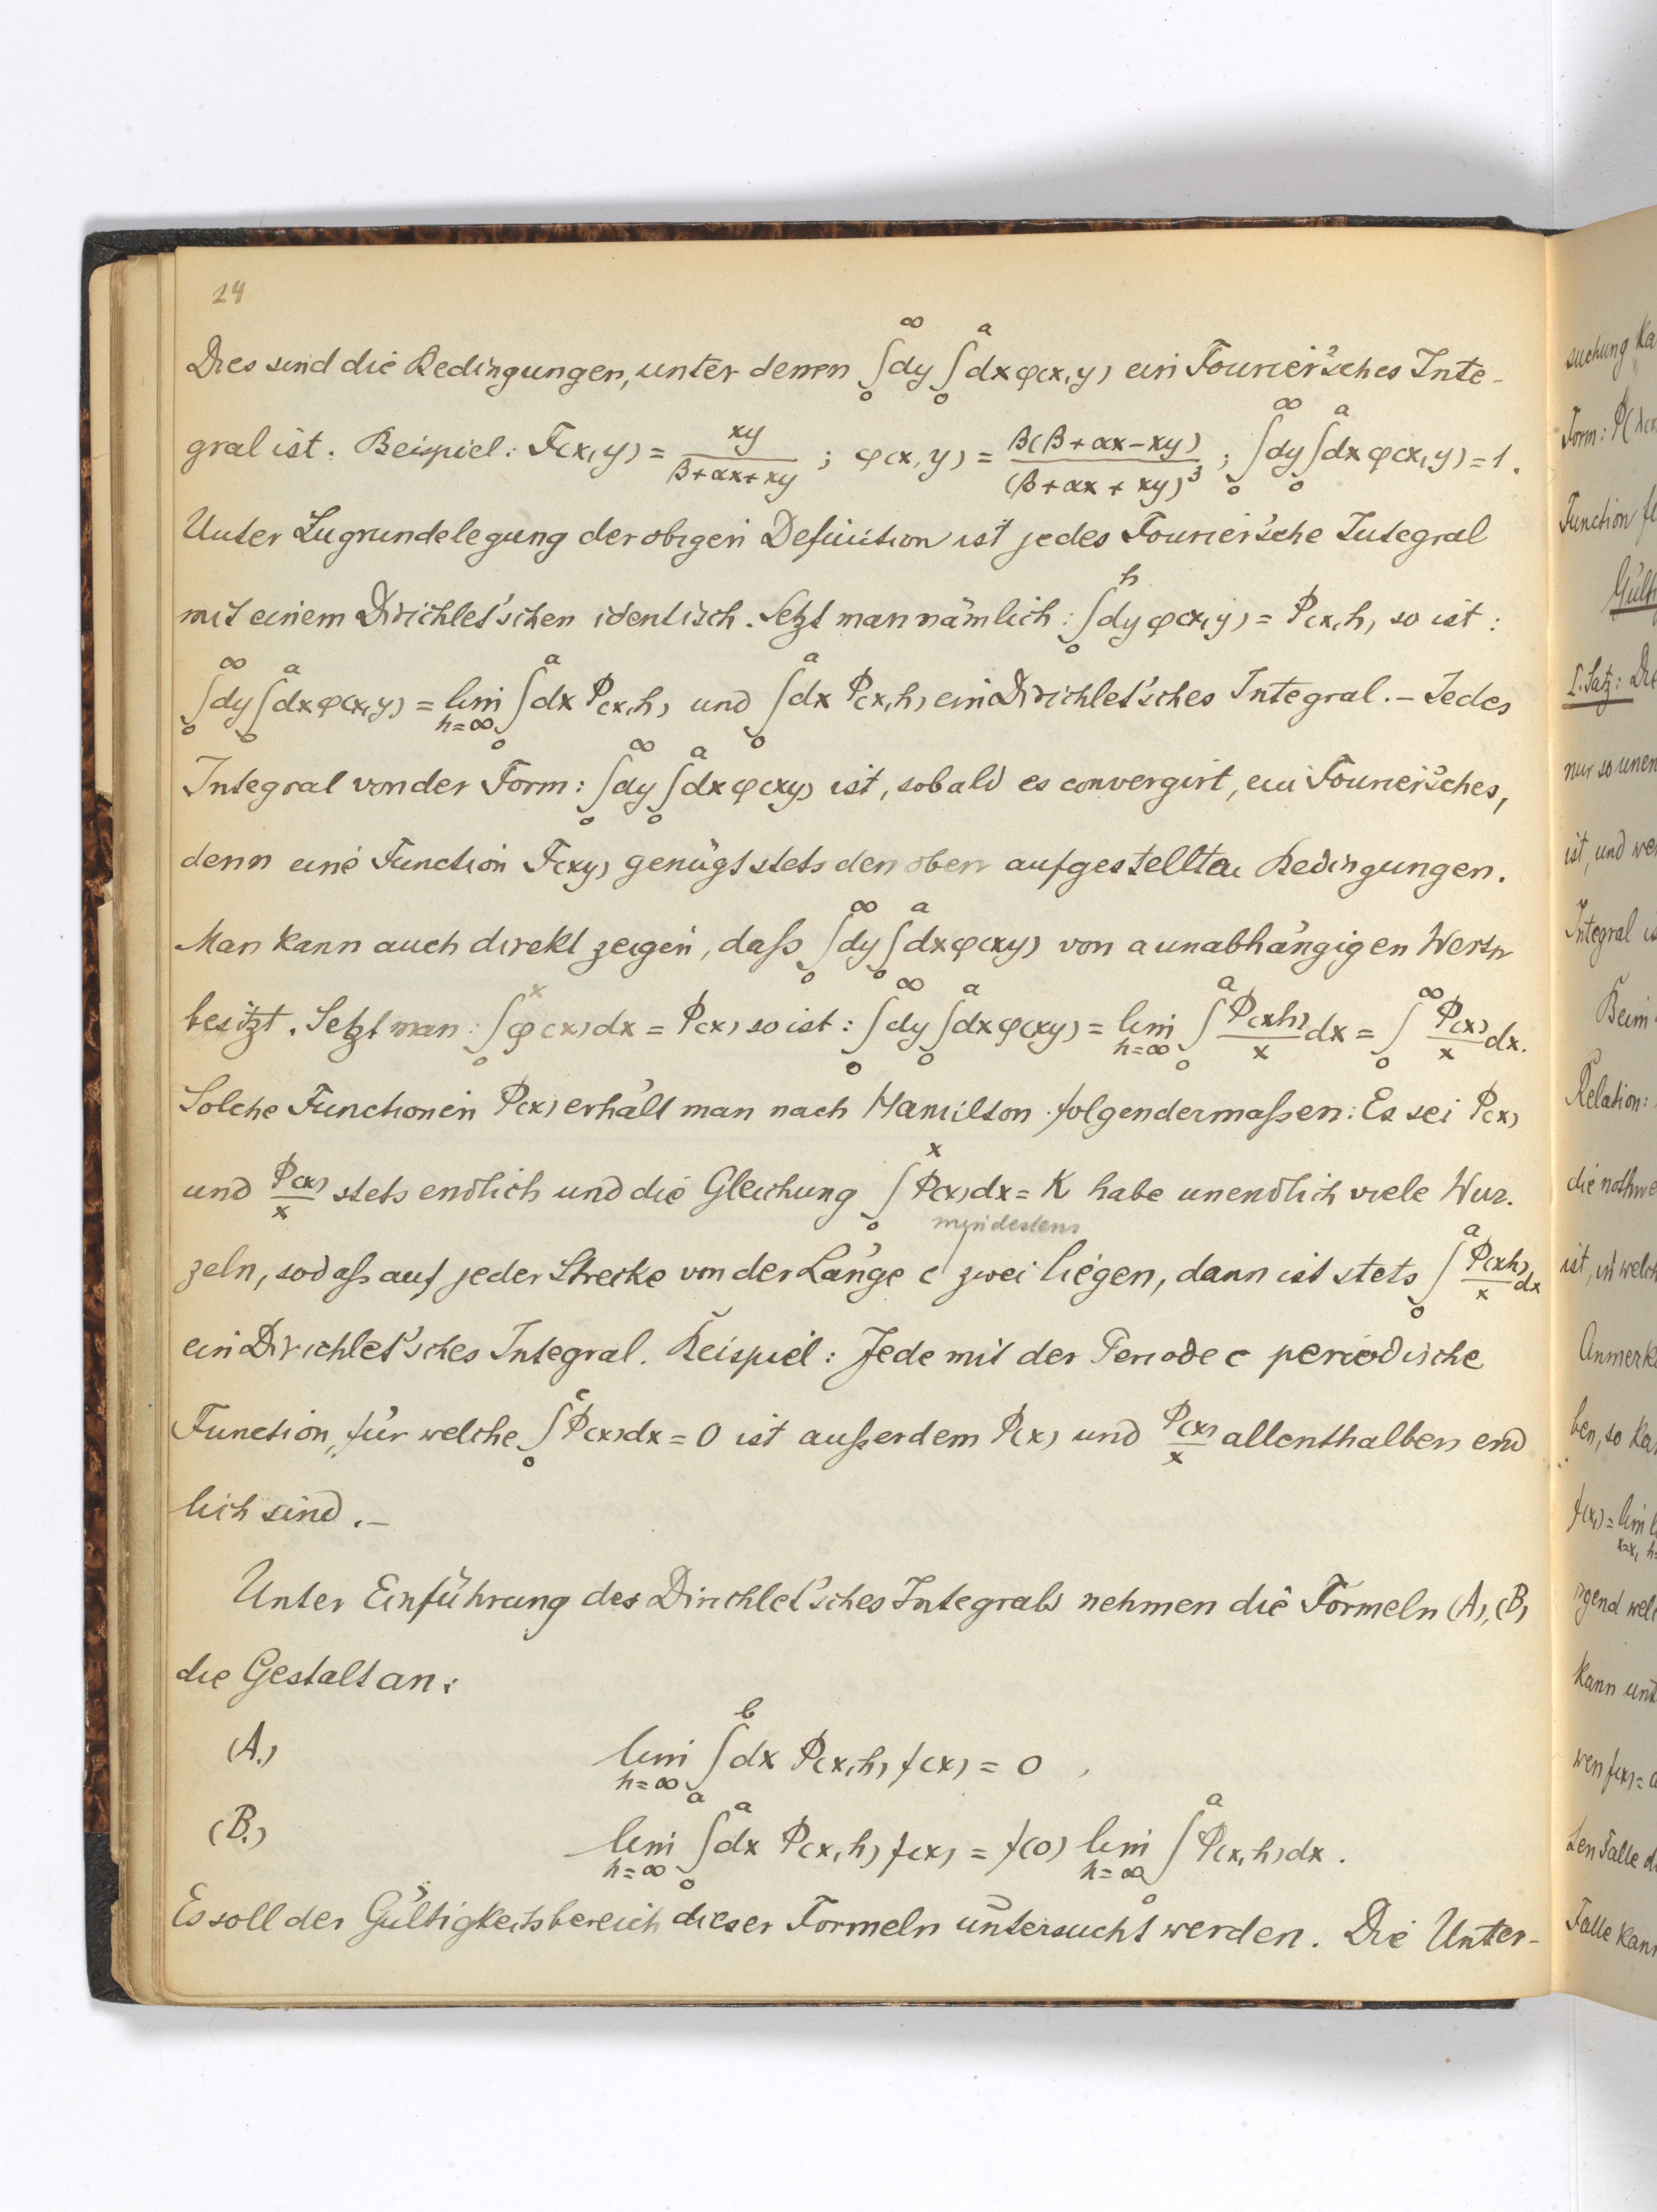 24
Dies sind die Bedingungen, unter denen ∫₀^∞ dy ∫₀^a dx φ(x,y) ein Fourier'sches Inte-
gral ist. Beispiel: F(x,y) = xy/(β+αx+xy) ; φ(x,y) = β(β+αx−xy)/(β+αx+xy)³ ; ∫₀^∞ dy ∫₀^a dx φ(x,y) = 1.
Unter Zugrundelegung der obigen Definition ist jedes Fourier'sche Integral
mit einem Dirichlet'schen identisch. Setzt man nämlich: ∫₀^h dy φ(x,y) = Φ(x,h) so ist:
∫₀^∞ dy ∫₀^a dx φ(x,y) = lim_{h=∞} ∫₀^a dx Φ(x,h) und ∫₀^a dx Φ(x,h) ein Dirichlet'sches Integral. – Jedes
Integral von der Form: ∫₀^∞ dy ∫₀^a dx φ(xy) ist, sobald es convergirt, ein Fourier'sches,
denn eine Function F(xy) genügt stets den oben aufgestellten Bedingungen.
Man kann auch direkt zeigen, daß ∫₀^∞ dy ∫₀^a dx φ(xy) von a unabhängigen Werth
besitzt. Setzt man: ∫₀^x φ(x)dx = Φ(x) so ist: ∫₀^∞ dy ∫₀^a dx φ(xy) = lim_{h=∞} ∫₀^a Φ(xh)/x dx = ∫₀^∞ Φ(x)/x dx.
Solche Functionen Φ(x) erhält man nach Hamilton folgendermaßen: Es sei Φ(x)
und Φ(x)/x stets endlich und die Gleichung ∫₀^x Φ(x)dx = K habe unendlich viele Wur-
mindestens
zeln, sodaß auf jeder Strecke von der Länge c zwei liegen, dann ist stets ∫₀^a Φ(xh)/x dx
ein Dirichlet'sches Integral. Beispiel: Jede mit der Periode c periodische
Function, für welche ∫₀^c Φ(x)dx = 0 ist außerdem Φ(x) und Φ(x)/x allenthalben end
lich sind. –
Unter Einführung des Dirichlet'sches Integrals nehmen die Formeln (A), (B)
die Gestalt an:
(A.) lim_{h=∞} ∫_a^b dx Φ(x,h) f(x) = 0 ,
(B.) lim_{h=∞} ∫₀^a dx Φ(x,h) f(x) = f(0) lim_{h=∞} ∫₀^a Φ(x,h)dx .
Es soll der Gültigkeitsbereich dieser Formeln untersucht werden. Die Unter-
suchung
Form:
Function
I. Satz: Die
nur so unen
ist, und we
Integral is
Beim
Relation:
die nothwe
ist, in welch
Anmerk
ben, so ka
f(x₁) = lim
irgend wel
kann unt
wen f(x) =
ten Falle d
Falle kann